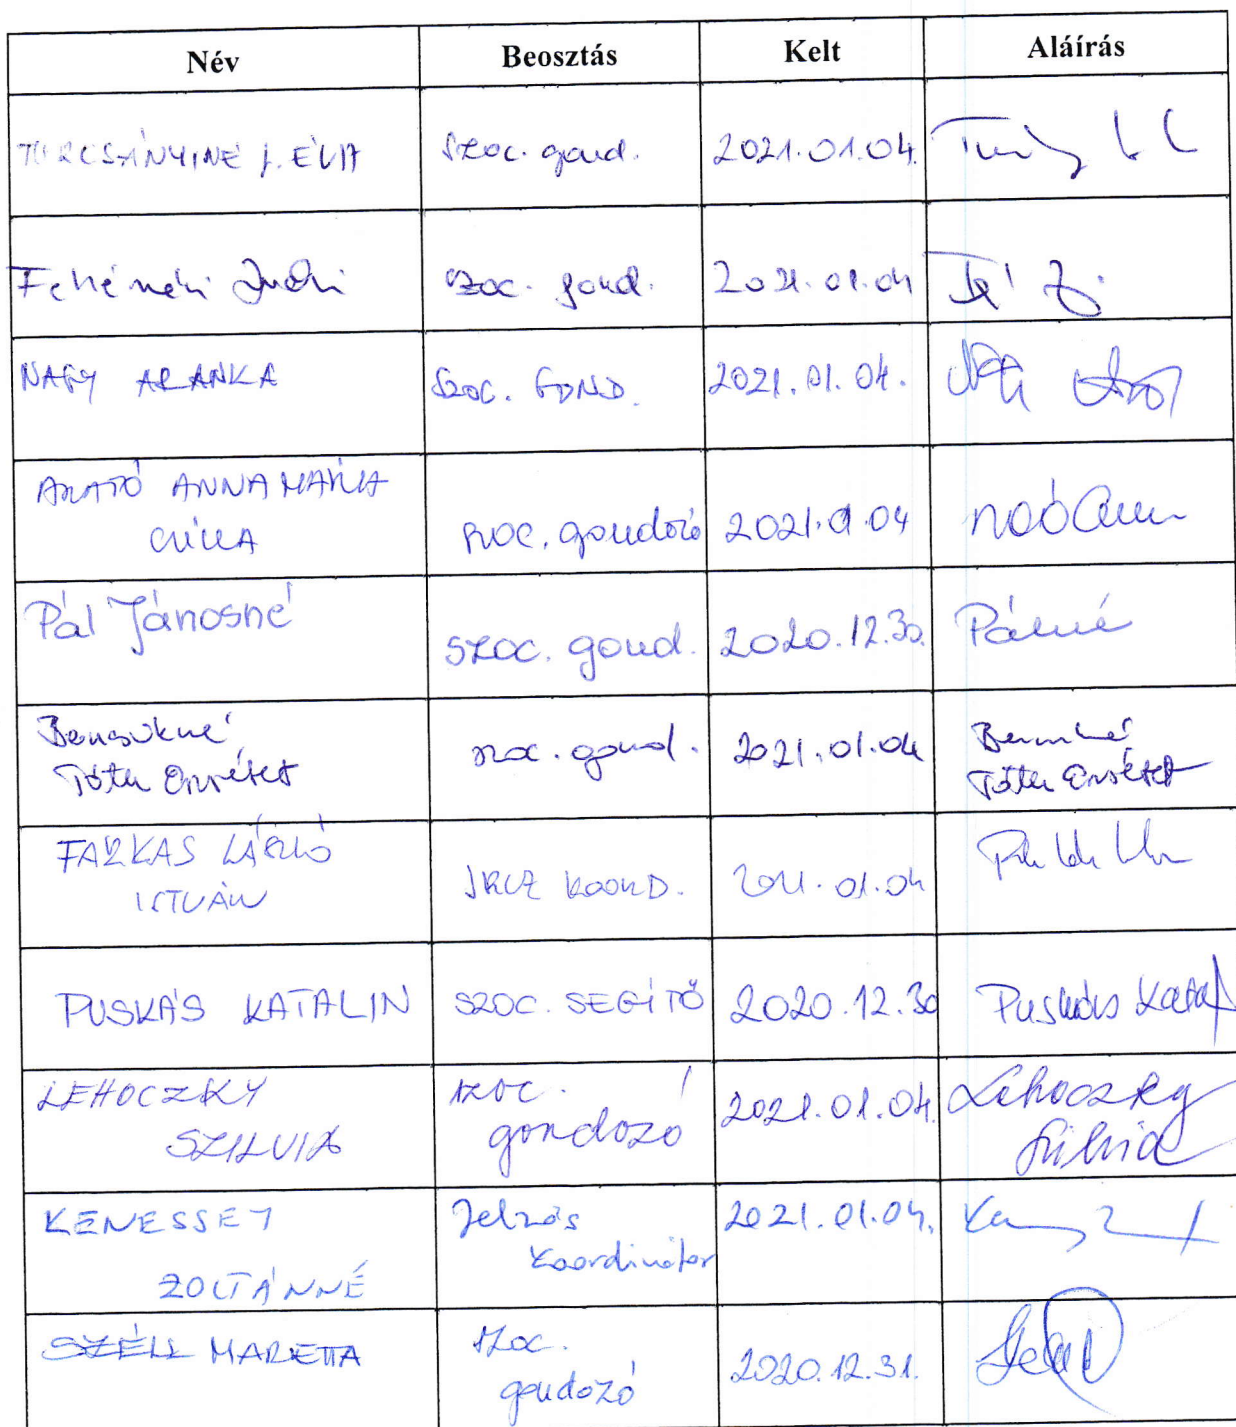 Név Beosztás Kelt Aláírás
TURCSÁNYINÉ J. ÉVA szoc. gond. 2021.01.04.
szoc. gond. 2021.01.04
NAGY ARANKA SZOC. GOND. 2021.01.04.
ARATÓ ANNAMÁRIA
CSILLA szoc. gondozó 2021.01.04
Pál Jánosné szoc. gond. 2020.12.30. Pálné
Tóth Erzsébet szoc. gond. 2021.01.04 Tóth Erzsébet
FARKAS LÁSZLÓ
ISTVÁN KOORD. 2021.01.04
PUSKÁS KATALIN SZOC. SEGÍTŐ 2020.12.30 Puskás Kata
LEHOCZKY szoc. Lehoczky
SZILVIA gondozó 2021.01.04. Szilvia
KENESSEY Jelzős 2021.01.04.
ZOLTÁNNÉ koordinátor
SZÉLL MARETTA szoc.
gondozó 2020.12.31.